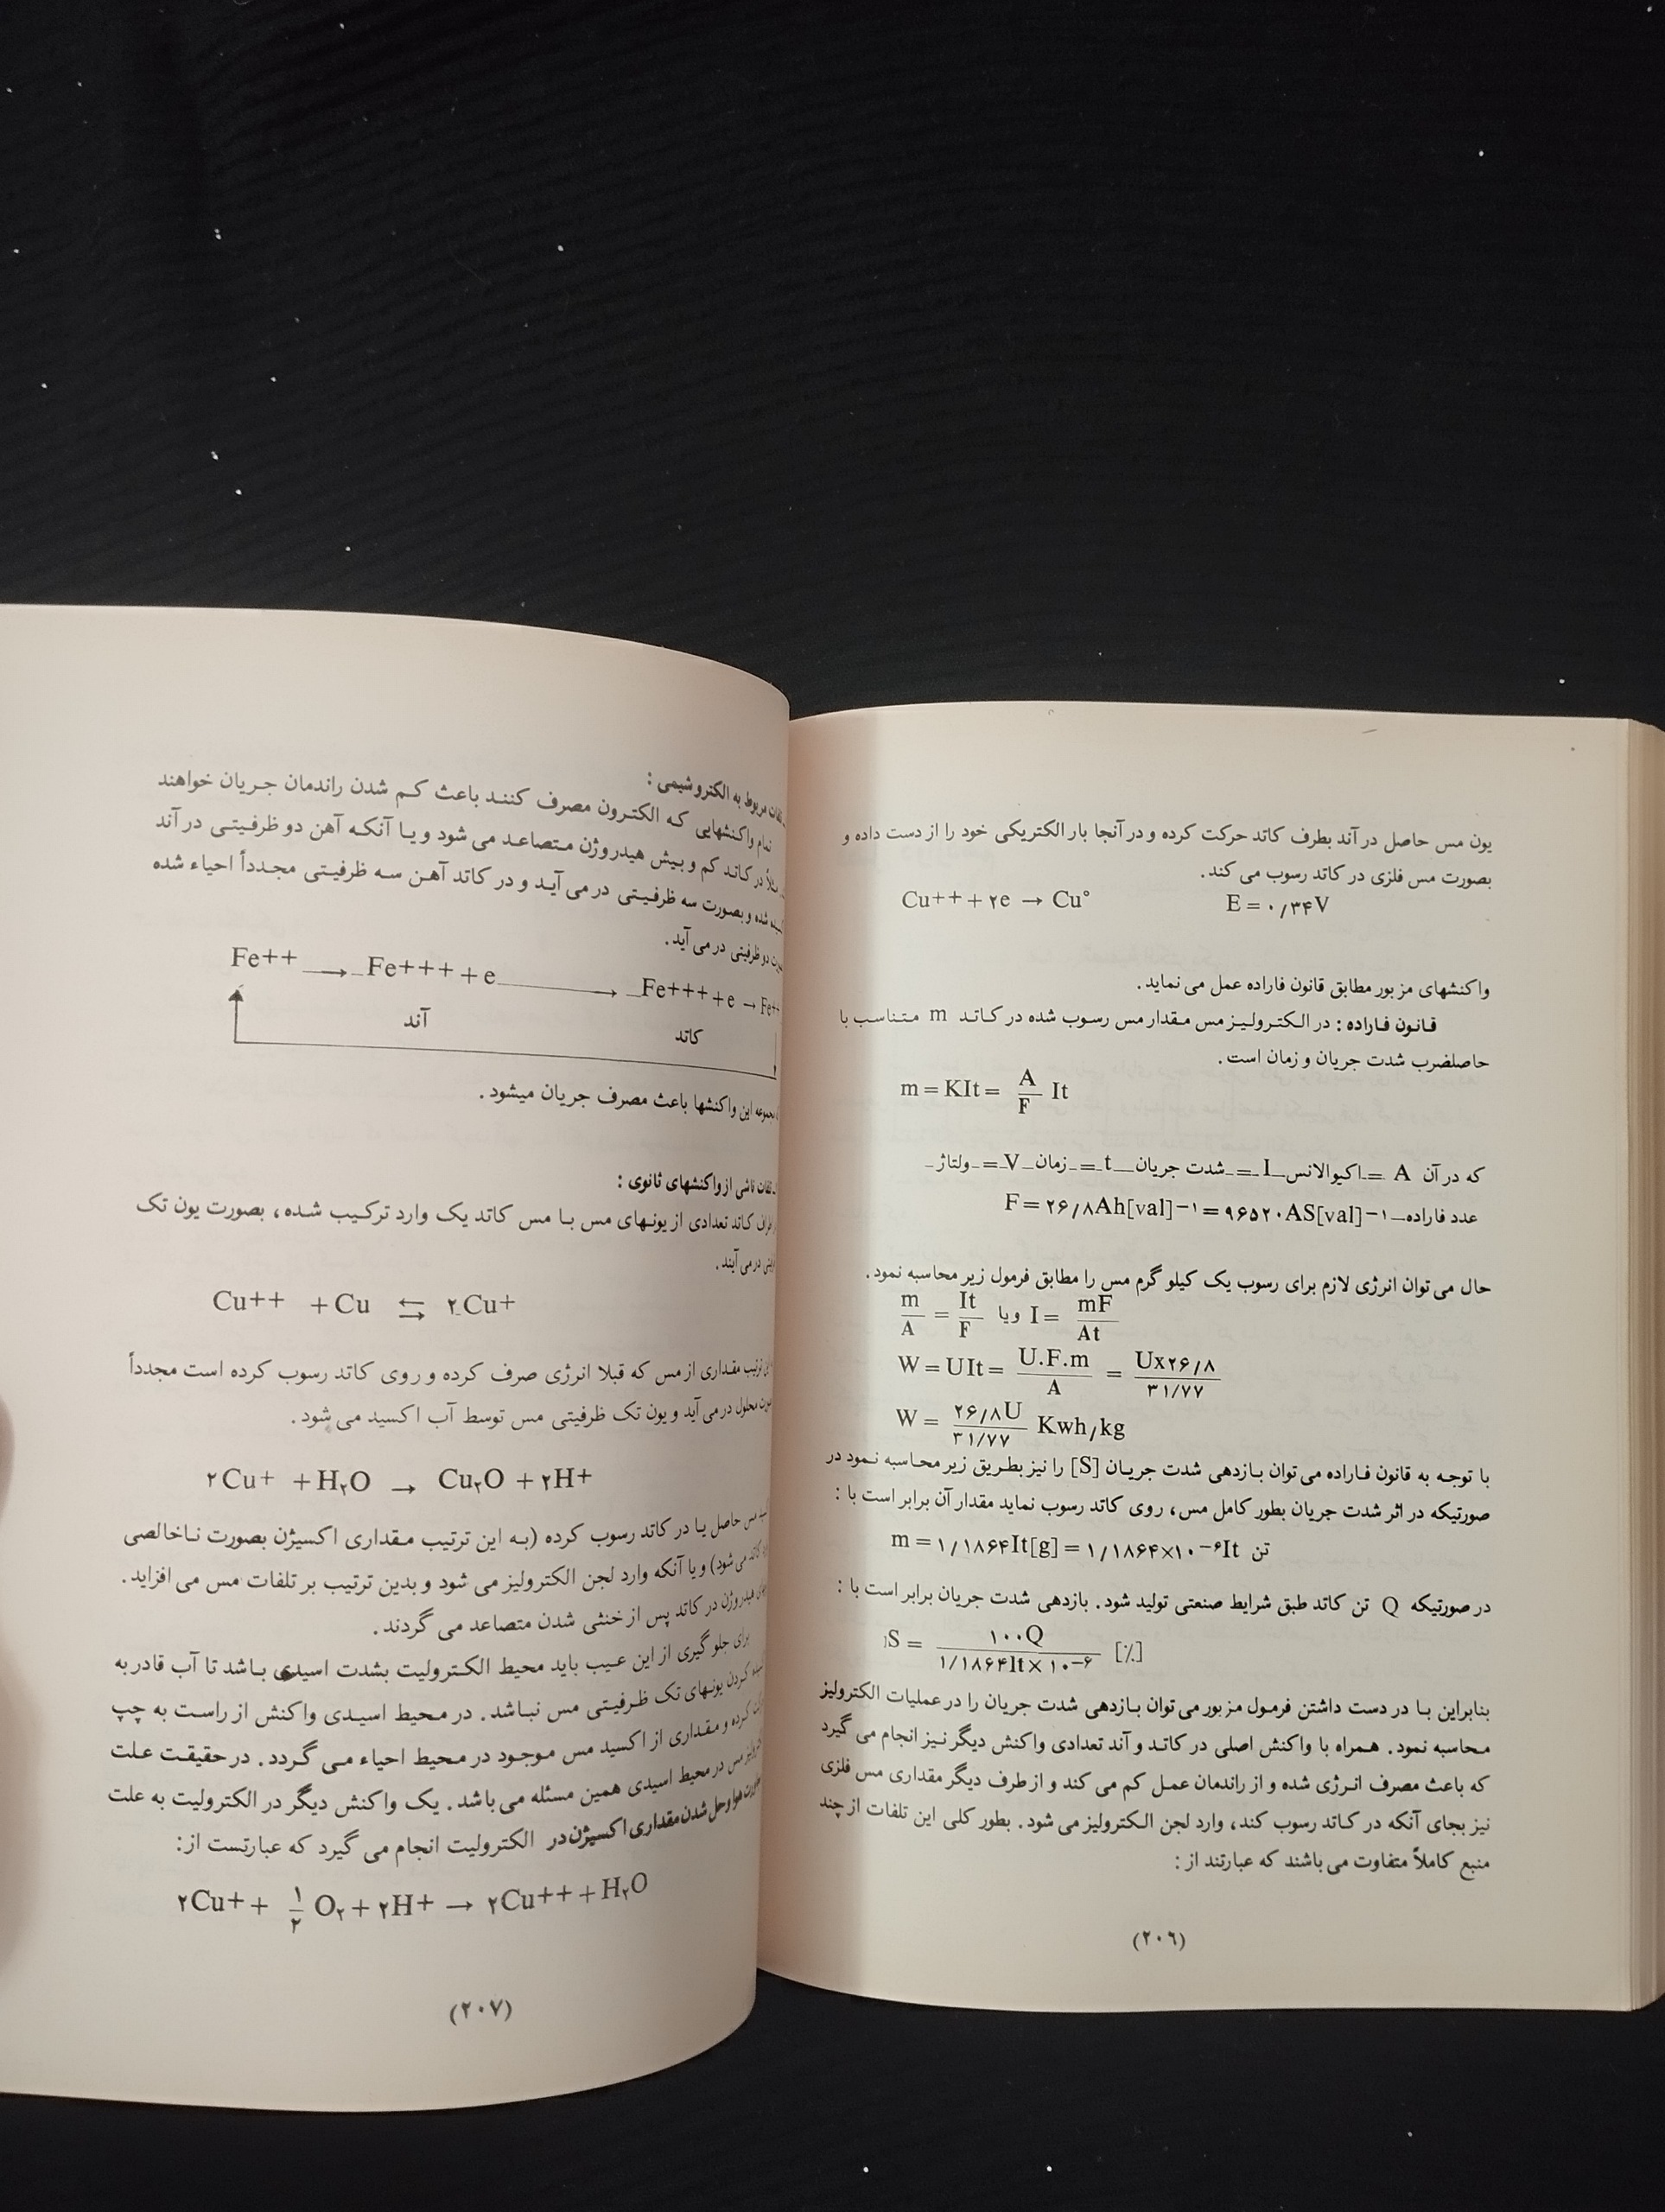 یون مس حاصل در آند بطرف کاتد حرکت کرده و در آنجا بار الکتریکی خود را از دست داده و
بصورت مس فلزی در کاتد رسوب می کند.
Cu++ + ۲e → Cu° E = ۰/۳۴V
واکنشهای مزبور مطابق قانون فاراده عمل می نماید.
قانون فاراده : در الکترولیز مس مقدار مس رسوب شده در کاتد m متناسب با
حاصلضرب شدت جریان و زمان است.
m = KIt = A/F It
که در آن A = اکیوالانس I = شدت جریان t = زمان V = ولتاژ
عدد فاراده F = ۲۶/۸Ah[val]−۱ = ۹۶۵۲۰AS[val]−۱
حال می توان انرژی لازم برای رسوب یک کیلو گرم مس را مطابق فرمول زیر محاسبه نمود.
m/A = It/F ویا I = mF/At
W = UIt = U.F.m/A = Ux۲۶/۸ / ۳۱/۷۷
W = ۲۶/۸U / ۳۱/۷۷ Kwh/kg
با توجه به قانون فاراده می توان بازدهی شدت جریان [S] را نیز بطریق زیر محاسبه نمود در
صورتیکه در اثر شدت جریان بطور کامل مس، روی کاتد رسوب نماید مقدار آن برابر است با :
m = ۱/۱۸۶۴It[g] = ۱/۱۸۶۴×۱۰−۶It تن
در صورتیکه Q تن کاتد طبق شرایط صنعتی تولید شود. بازدهی شدت جریان برابر است با :
S = ۱۰۰Q / ۱/۱۸۶۴It×۱۰−۶ [٪]
بنابراین با در دست داشتن فرمول مزبور می توان بازدهی شدت جریان را در عملیات الکترولیز
محاسبه نمود. همراه با واکنش اصلی در کاتد و آند تعدادی واکنش دیگر نیز انجام می گیرد
که باعث مصرف انرژی شده و از راندمان عمل کم می کند و از طرف دیگر مقداری مس فلزی
نیز بجای آنکه در کاتد رسوب کند، وارد لجن الکترولیز می شود. بطور کلی این تلفات از چند
منبع کاملاً متفاوت می باشند که عبارتند از :
(۲۰۶)
مربوط به الکتروشیمی :
تمام واکنشهایی که الکترون مصرف کنند باعث کم شدن راندمان جریان خواهند
در کاتد کم و بیش هیدروژن متصاعد می شود و یا آنکه آهن دو ظرفیتی در آند
شده و بصورت سه ظرفیتی در می آید و در کاتد آهن سه ظرفیتی مجدداً احیاء شده
دو ظرفیتی در می آید.
Fe++ → Fe+++ + e → Fe+++ + e → Fe++
آند
کاتد
مجموعه این واکنشها باعث مصرف جریان میشود.
تلفات ناشی از واکنشهای ثانوی :
کاتد تعدادی از یونهای مس با مس کاتد یک وارد ترکیب شده، بصورت یون تک
در می آیند.
Cu++ + Cu ⇆ ۲Cu+
ترتیب مقداری از مس که قبلا انرژی صرف کرده و روی کاتد رسوب کرده است مجدداً
محلول در می آید و یون تک ظرفیتی مس توسط آب اکسید می شود.
۲Cu+ + H۲O → Cu۲O + ۲H+
مس حاصل یا در کاتد رسوب کرده (به این ترتیب مقداری اکسیژن بصورت ناخالصی
می شود) و یا آنکه وارد لجن الکترولیز می شود و بدین ترتیب بر تلفات مس می افزاید.
هیدروژن در کاتد پس از خنثی شدن متصاعد می گردند.
برای جلو گیری از این عیب باید محیط الکترولیت بشدت اسیدی باشد تا آب قادر به
کردن یونهای تک ظرفیتی مس نباشد. در محیط اسیدی واکنش از راست به چپ
کرده و مقداری از اکسید مس موجود در محیط احیاء می گردد. در حقیقت علت
مس در محیط اسیدی همین مسئله می باشد. یک واکنش دیگر در الکترولیت به علت
هوا و حل شدن مقداری اکسیژن در الکترولیت انجام می گیرد که عبارتست از:
۲Cu+ + ۱/۲ O۲ + ۲H+ → ۲Cu++ + H۲O
(۲۰۷)